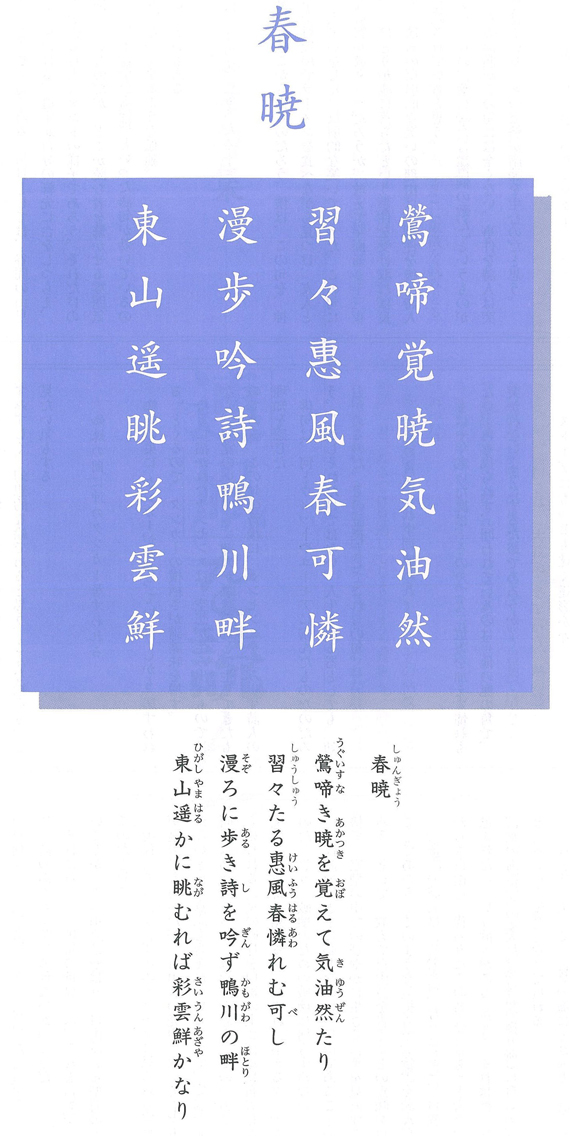 春暁
鶯啼覚暁気油然
習々惠風春可憐
漫歩吟詩鴨川畔
東山遥眺彩雲鮮
しゅんぎょう
春暁
うぐいす な あかつき おぼ き ゆう ぜん
鶯啼き暁を覚えて気油然たり
しゅうしゅう けい ふう はる あわ べ
習々たる惠風春憐れむ可し
そぞ ある し ぎん かも がわ ほとり
漫ろに歩き詩を吟ず鴨川の畔
ひがし やま はる なが さい うん あざや
東山遥かに眺むれば彩雲鮮かなり